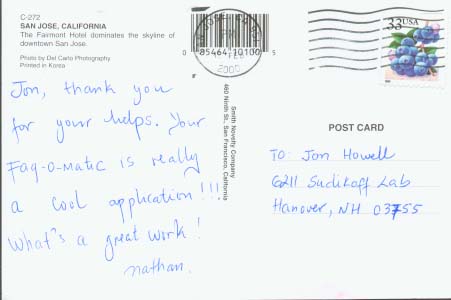 C-272
SAN JOSE, CALIFORNIA
The Fairmont Hotel dominates the skyline of
downtown San Jose.
Photo by Del Carlo Photography
Printed in Korea
0 85464 10100 5
2000
33USA
Jon, thank you
for your helps. Your
Faq-O-Matic is really
a cool application!!!
What's a great work!
nathan.
Smith Novelty Company
460 Ninth St., San Francisco, California
POST CARD
TO: Jon Howell
6211 Sudikoff Lab
Hanover, NH 03755